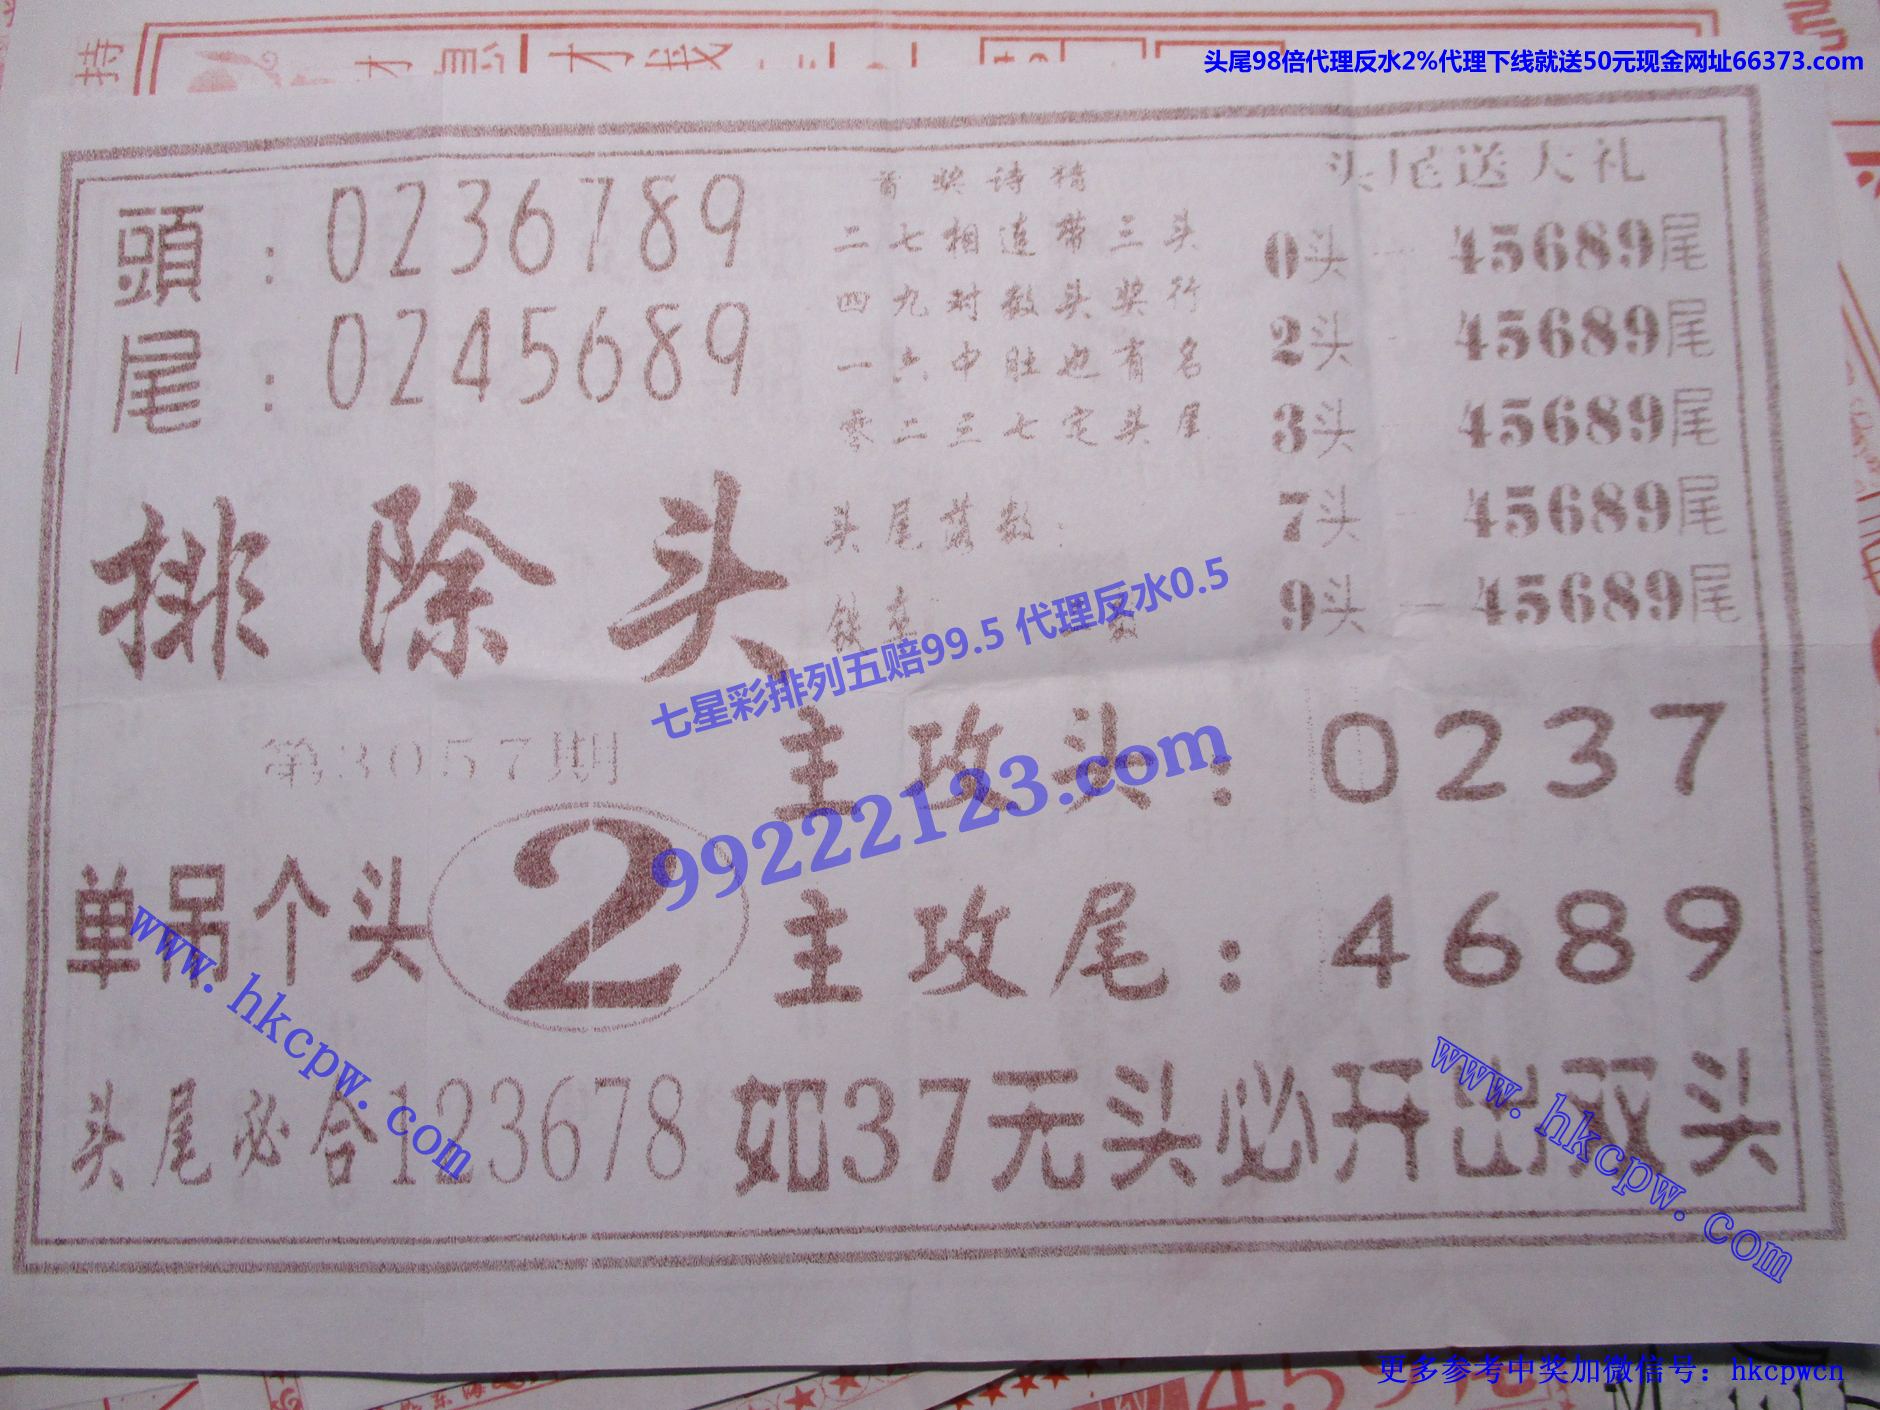 头尾98倍代理反水2%代理下线就送50元现金网址66373.com
持
頭：0236789
尾：0245689
首奖诗猜
二七相连带三头
四九对数头奖行
一六中肚也有名
零二三七定头尾
头尾送大礼
0头－45689尾
2头－45689尾
3头－45689尾
7头－45689尾
9头－45689尾
排除头
头尾落数：
七星彩排列五赔99.5 代理反水0.5
99222123.com
第3057期
主攻头：0237
单吊个头2
主攻尾：4689
www.hkcpw.com
头尾必合123678
如37无头必开出双头
www.hkcpw.com
更多参考中奖加微信号：hkcpwcn